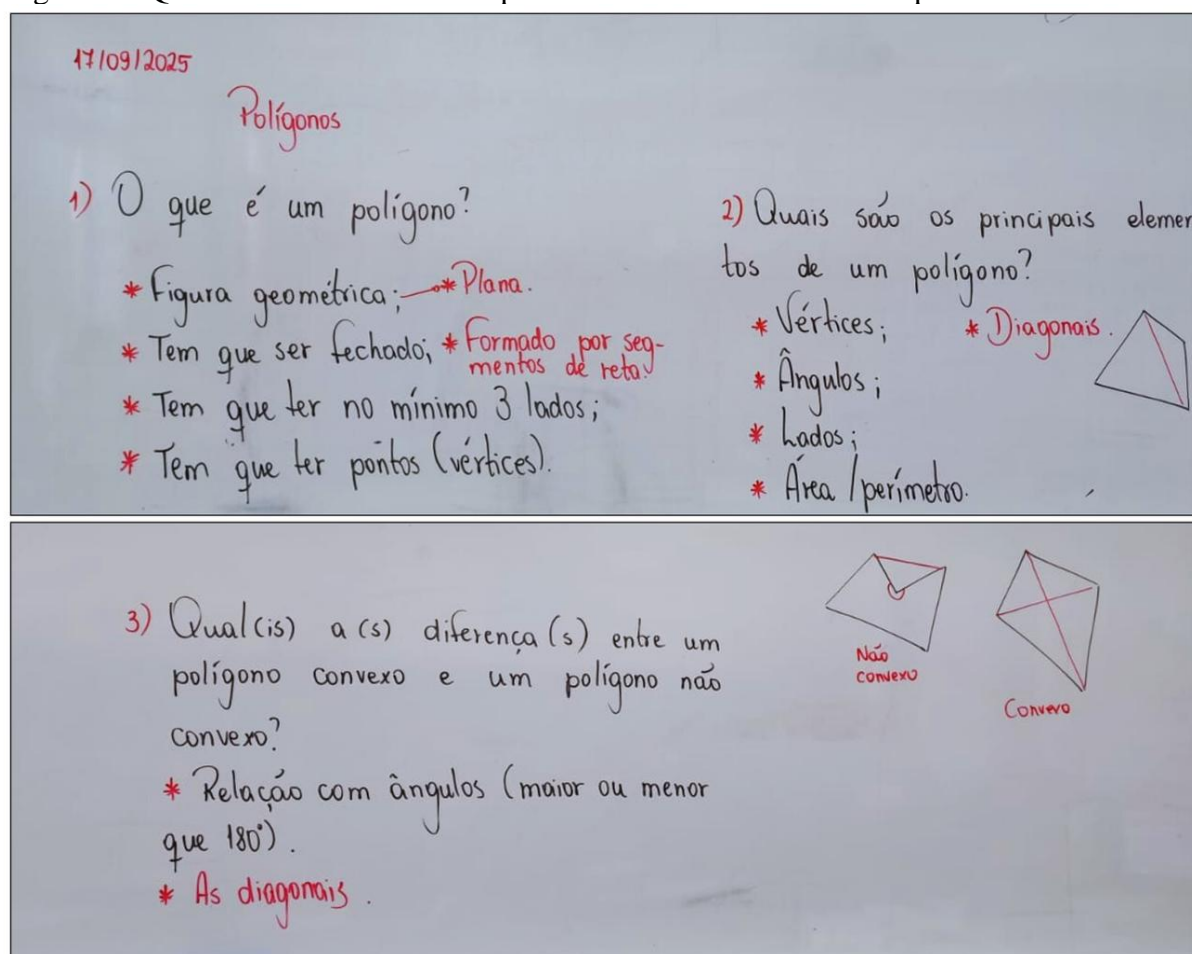 17/09/2025
Polígonos
1) O que é um polígono?
* Figura geométrica; * Plana.
* Tem que ser fechado; * Formado por seg-
mentos de reta.
* Tem que ter no mínimo 3 lados;
* Tem que ter pontos (vértices).
2) Quais são os principais elemen
tos de um polígono?
* Vértices; * Diagonais.
* Ângulos;
* Lados;
* Área / perímetro.
3) Qual(is) a(s) diferença(s) entre um
polígono convexo e um polígono não
convexo?
* Relação com ângulos (maior ou menor
que 180°).
* As diagonais.
Não
convexo
Convexo